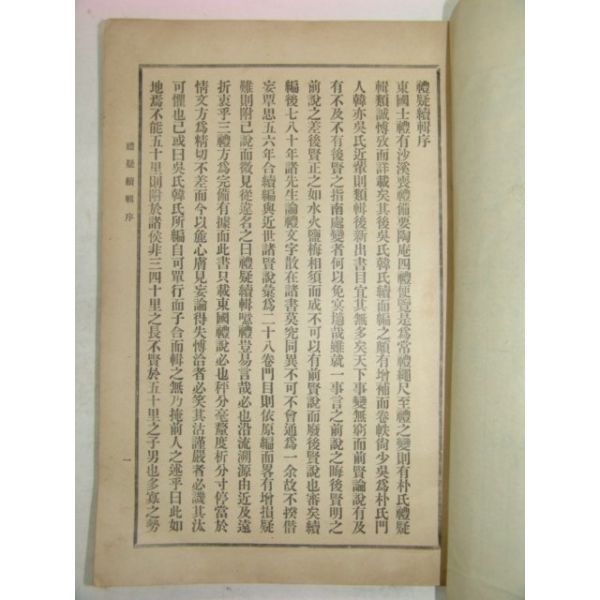 禮疑續輯序
東國士禮有沙溪喪禮備要陶庵四禮便覽是爲常禮繩尺至禮之變則有朴氏禮疑
輯類誠愽攷而詳載矣其後吳氏韓氏續而編之頗有增補而卷帙尙少吳爲朴氏門
人韓亦吳氏近輩則類輯後新出書目宜其無多矣天下事變無窮而前賢論說有及
有不及不有後賢之指南處變者何以免寃擿哉雖就一事言之前說之晦後賢明之
前說之差後賢正之如水火鹽梅相須而成不可以有前賢說而廢後賢說也審矣續
編後七八十年諸先生論禮文字散在諸書莫究同異不可不會通爲一余故不揆僣
妄覃思五六年合續編與近世諸賢說彙爲二十八卷門目則依原編而畧有增損疑
難則附己說而微見從違名之曰禮疑續輯噫禮豈易言哉必也沿流溯源由近及遠
折衷乎三禮方爲完備有據而此書只載東國禮說必也秤分毫釐度析分寸停當於
情文方爲精切不差而今以麁心膚見妄論得失愽洽者必笑其沾謹嚴者必譏其汰
可懼也已或曰吳氏韓氏所編自可單行而子合而輯之無乃掩前人之述乎曰此如
地焉不能五十里則附於諸侯非三四十里之長不賢於五十里之子男也多寡之勢
禮疑續輯序
一